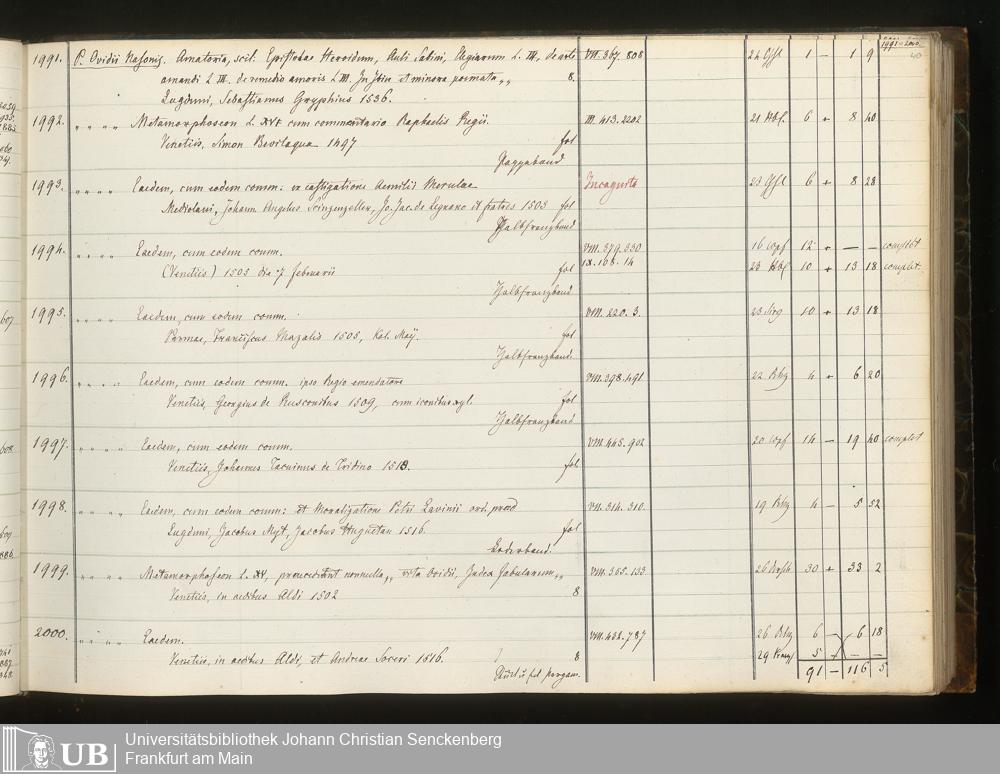 1991-2000.
40
1991. P. Ovidii Nasonis. Amatoria, scil. Epistolae Heroidum, Auli Sabini, Elegiarum L. III, de arte VII. 367. 808 1 — 1 9
amandi L III. de remedio amoris L III. In Ibin et minora poemata „ 8.
Lugduni, Sebastianus Gryphius 1536.
1992. „ „ „ „ Metamorphoseon L. XV cum commentario Raphaelis Regii. III. 413. 2202 21 6 + 8 40
Venetiis, Simon Bevilaqua 1497 fol
Pappband
1993. „ „ „ „ Eaedem, cum eodem comm: ex castigatione Aemilii Merulae Incognito 23 6 + 8 28
Mediolani, Johann Angelus Scinzenzeller, Jo. Jac. de Legnano et fratres 1503 fol
Halbfranzband
1994. „ „ „ „ Eaedem, cum eodem comm. VIII. 379. 330 16 12 + — — complet
(Venetiis) 1503 die 7 februarii fol IX. 168. 14 23 10 + 13 18 complet.
Halbfranzband
1995. „ „ „ „ Eaedem, cum eodem comm. VIII. 220. 3. 23 10 + 13 18
Parmae, Franciscus Mazalis 1505, Kal. Maij. fol.
Halbfranzband
1996. „ „ „ „ Eaedem, cum eodem comm. ipso Regio emendatore VIII. 398. 491 22 4 + 6 20
Venetiis, Georgius de Rusconibus 1509, cum iconibus xyl. fol
Halbfranzband
1997. „ „ „ „ Eaedem, cum eodem comm. VIII. 445. 902 20 14 — 19 40 complet
Venetiis, Johannes Tacuinus de Tridino 1513. fol
1998. „ „ „ „ Eaedem, cum eodem comm: et Moralizatione Petri Lavinii ord. praed VII. 314. 310. 19 4 — 5 52
Lugduni, Jacobus Myt, Jacobus Huguetan 1516. fol
Lederband.
1999. „ „ „ „ Metamorphoseon L. XV, praecedunt nonnulla „ vita Ovidii, Index fabularum „ VIII. 365. 133 26 30 + 33 2
Venetiis, in aedibus Aldi 1502 8
2000. „ „ „ „ Eaedem. VIII. 488. 787 26 6 — 6 18
Venetiis, in aedibus Aldi, et Andreae Soceri 1516. 8 29 5 — — —
91 — 116 5
UB Universitätsbibliothek Johann Christian Senckenberg
Frankfurt am Main